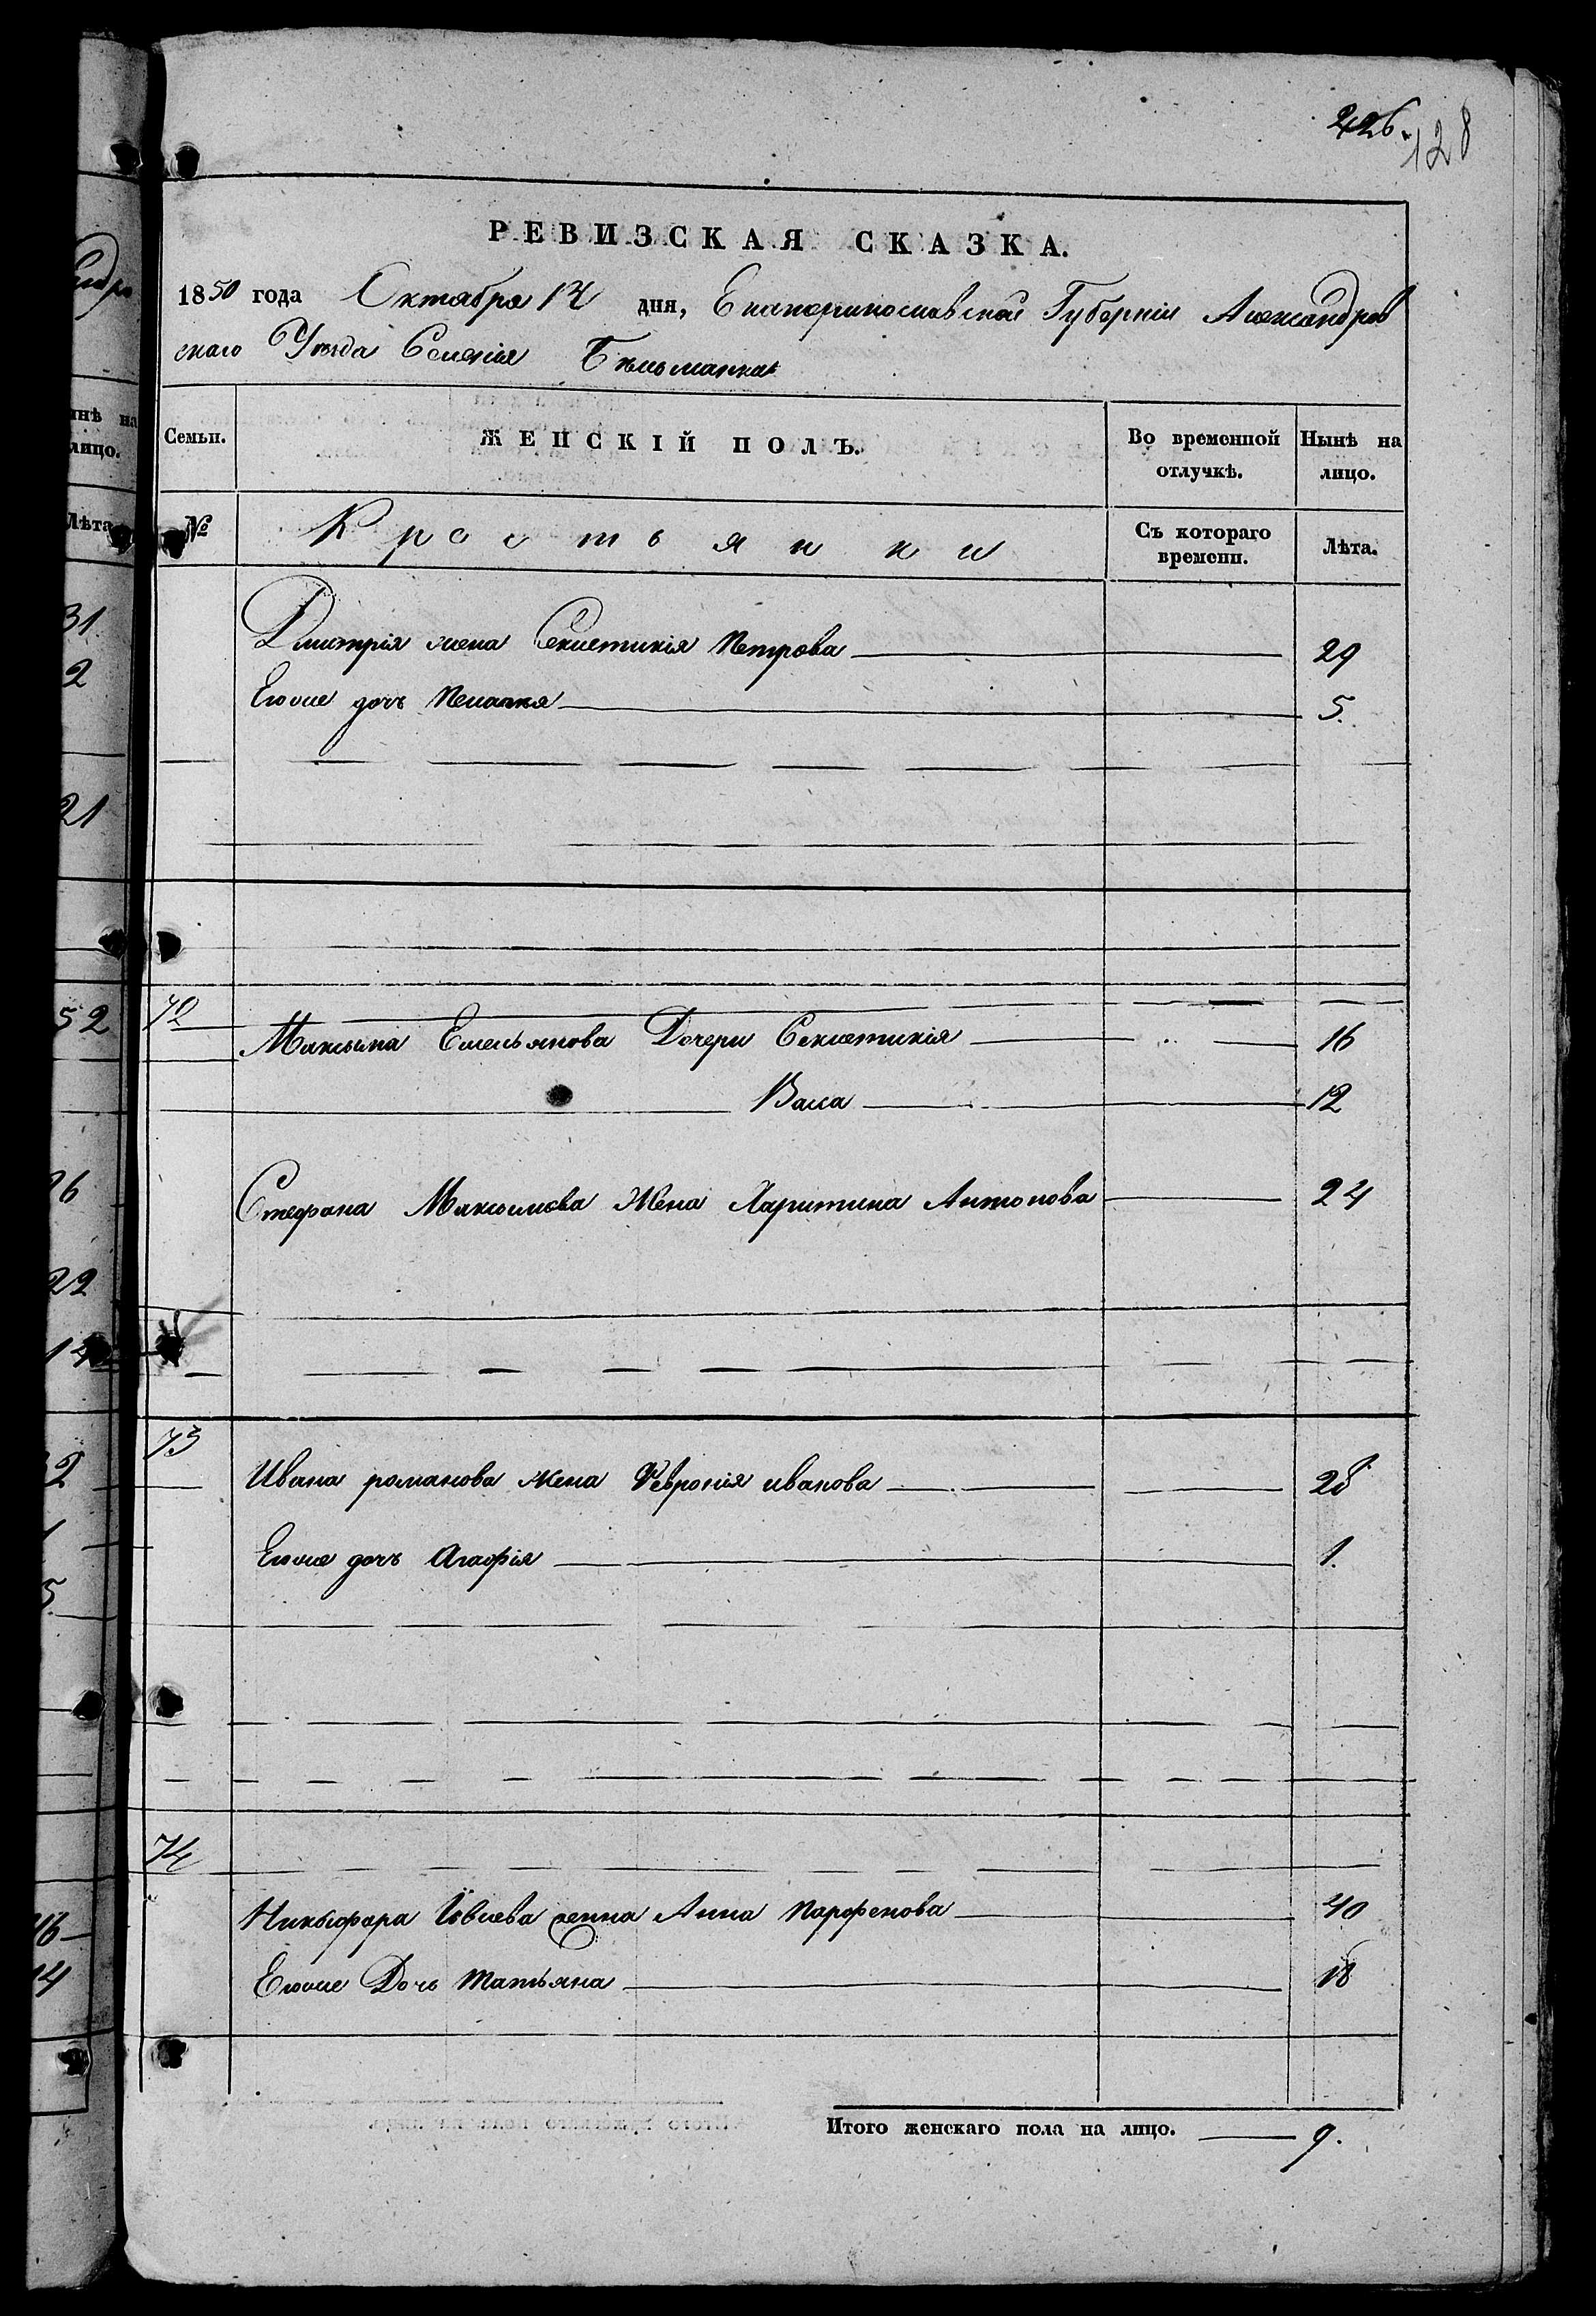 426. 128
РЕВИЗСКАЯ СКАЗКА.
1850 года Октября 14 дня, Екатеринославской Губерніи Александров
скаго Уѣзда Селенія Бѣльманка
Семьи. ЖЕНСКІЙ ПОЛЪ. Во временной отлучкѣ. Нынѣ на лицо.
№ Крестьянки Съ котораго времени. Лѣта.
Дмитрія жена Секлетикія Петрова 29
Егоже дочь Пелагея 5.
72
Максыма Емельянова Дочери Секлетикія 16
Васса 12
Стефана Максимова Жена Харитина Антонова 24
73
Ивана романова жена Февронія иванова 28
Егоже дочь Агафія 1.
74
Никыфора женна Анна Парфенова 40
Егоже Дочь Татьяна 18
Итого женскаго пола на лицо. 9.